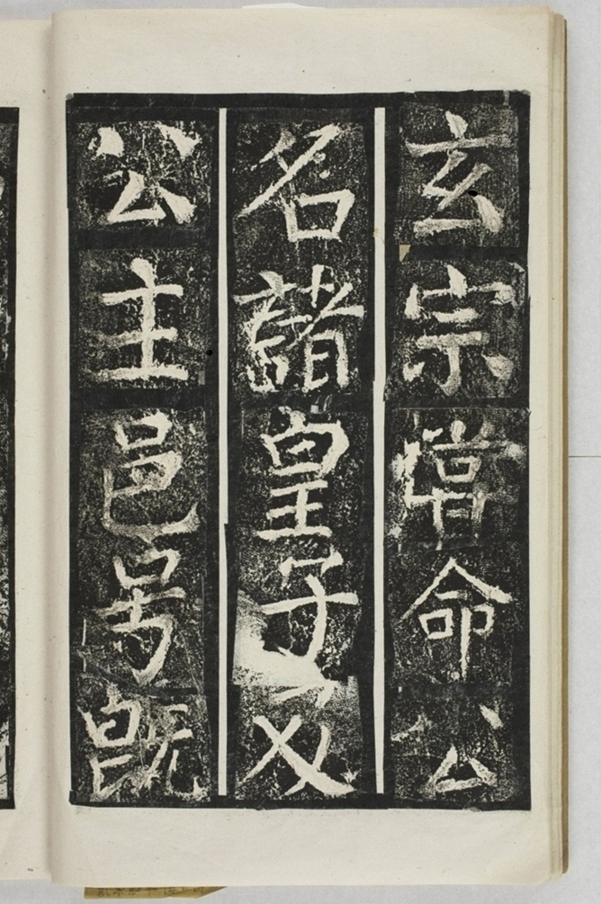 玄宗常命公
名諸皇子及
公主邑号既